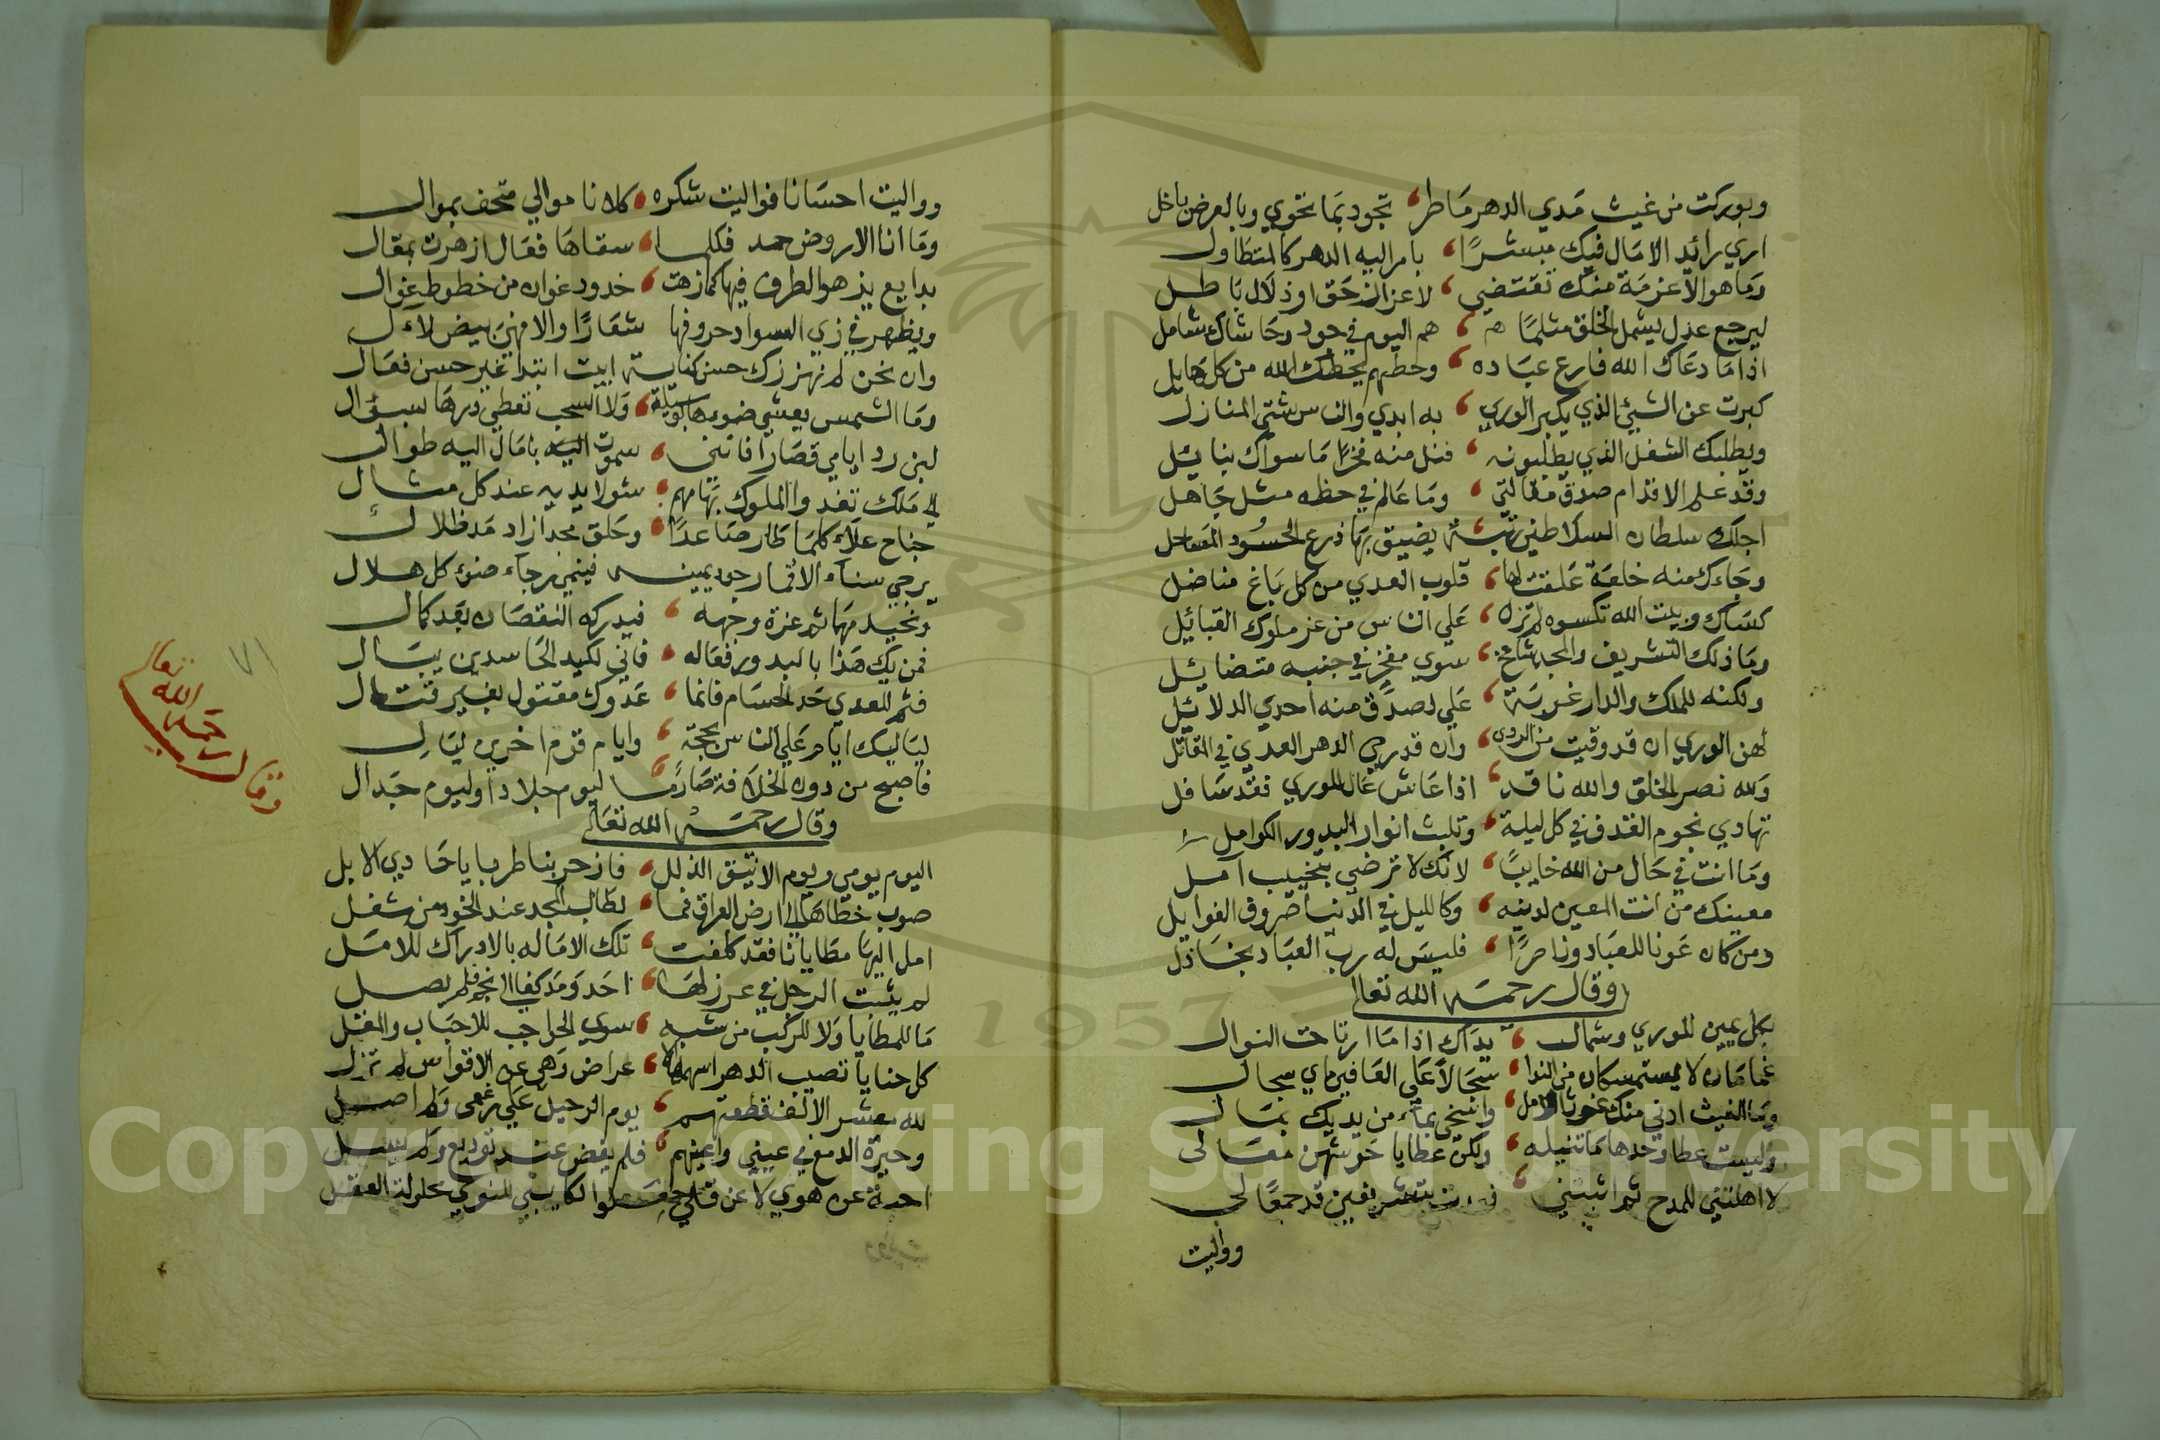 وبوركت من غيث مدي الدهر ماطر ، تجود بما تحوي وبالعرض باخل
اري رائد الامال فيك مبشرًا ، بامر اليه الدهر كالمتطاول
وما هو الا عزمة منك تقتضي ، لاعزاز حق او ذلال باطل
ليرجع عدل يشمل الخلق مثلما هم ، هم اليوم في جود وحاشاك شامل
اذا ما دعاك الله فارع عباده ، وحطهم يحطك الله من كل هايل
كبرت عن الشيئ الذي يكبر الوري ، به ابدي والناس شتي المنازل
ويطلبك الشغل الذي يطلبونه ، فنل منه فخرًا ما سواك بنايئل
وقد علم الاقدام صدق مقالتي ، وما عالم في حظه مثل جاهل
اجلك سلطان السلاطين رتبة ، يضيق بها ذرع الحسود
وجاءك منه خلعة علقت لها ، قلوب العدي من كل باغ مناضل
كساك وبيت الله تكسوه لم تزل ، علي الناس من عز ملوك القبائل
وما ذلك التشريف والمجد شامخ ، سوي مفخر في جنبه متضايئل
ولكنه للملك والدار غربية ، علي لصدق منه احدي الدلايئل
لهن الوري ان قد وقيت من الردي ، وان قد رمي الدهر العدي في المقاتل
ولله نصر الخلق والله ناقد ، اذا عاش عال للوري فقد سافل
تهادي نجوم القذف في كل ليلة ، وتلبث انوار البدور الكوامل
وما انت في حال من الله خايبًا ، لانك لا ترضي بتخييب آمل
معينك من انت المعين لدينه ، وكالليل في الدنيا صروف الغوايل
ومن كان عونا للعباد وناصرًا ، فليس له رب العباد بخاذل
وقال رحمه الله تعالي
بكل يمين للوري وشمال ، يداك اذا ما ارتاحت لنوال
غمامان لا يستمسكان من الندا ، سجالًا علي العافين اي سجال
وما الغيث ادني منك غوثا لآمل ، واسخي بماء من يديك بمال
وليست عطا وحدها ما تنيله ، ولكن عطايا حوشهن معالي
لا اهلتني للمدح ثم اثبتني ، بتشريفين قد جمعا لي
وواليت
وواليت احسانا فواليت شكره ، كلانا موالي متحف بموال
وما انا الا روض حمد فكلما ، سقاها فعال ازهرت بمقال
بدايع يزهو الطرف فيها كما زهت ، خدود غوان من خطوط غوال
ويظهر في زي السواد حروفها شعارًا والا فهي بيض لآل
وان نحن لم نهززك حسن كناية ابيت ابتدا غير حسن فعال
وما الشمس يعشي ضوءها بوسيلة ، ولا السحب تعطي درها بسؤال
لين رد ايامي قصارا فانني ، سموت اليه بامال اليه طوال
الي ملك تغدوا الملوك بهامهم ، مثولا يديه عند كل مثال
جناح علاء كلما طار صاعدًا ، وحلق مجدا زاد مد ظلال
يرجي سناء الاقمار جود يمينه فينمي رجاء ضوء كل هلال
وتخيد مهما ثم غرة وجهه ، فيدركه النقصان بعد كمال
فمن يك هذا بالبدور فعاله ، فاني لكيد الحاسدين يبال
فثم للعدي حد الحسام فانما ، عدوك مقتول بغير قتال
لياليك ايام علي الناس بهجة ، وايام قوم اخرين ليال
فاصبح من دون الخلافة صارمًا ليوم جلاد او ليوم جدال
وقال رحمه الله تعالي
اليوم يومي ويوم الانيق الذلل ، فازجر بنا طربا يا حادي الابل
صوب خطاها الي ارض العراق فما ، لطالب المجد عند الخود من شغل
امل اليها مطايانا فقد كلفت ، تلك الاماله بالادراك للامل
لم يثبت الرحل في غرز لها ، احد ومد كفا الي نجم فلم يصل
ما للمطايا ولا للركب من شبه ، سوي الحواجب للاحباب والمقل
كل حنايا تصيب الدهر اسهمها ، عراض وهي عن الاقواس لم تزل
لله معشر الاف قطعتهم ، يوم الرحيل علي رغمي ولم اصل
وحيرة الدمع في عيني واعينهم ، فلم يفض عند توديع ولم يسل
احبة عن هوي لا عن قلي حملوا للنوي محلولة العقل
وقال رحمه الله تعالي
٧١
Copyright © King Saud University
1957